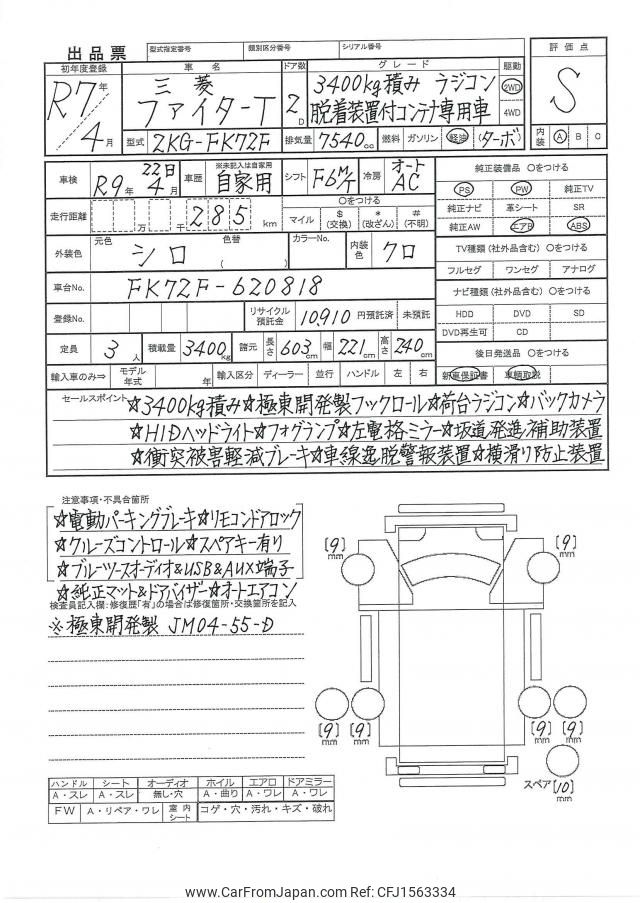 出品票 型式指定番号 類別区分番号 シリアル番号
評価点
初年度登録 車名 ドア数 グレード 駆動
R7年 三菱 2D 3400kg積み ラジコン 2WD S
4月 ファイターT 脱着装置付コンテナ専用車 4WD
型式 2KG-FK72F 排気量 7540cc 燃料 ガソリン 軽油 (ターボ) 内装 A B C
車検 R9年 22日 4月 車歴 ※未記入は自家用 自家用 シフト F6M/T 冷房 オートAC
純正装備品 ○をつける
PS PW 純正TV
走行距離 万 千 285 km ○をつける
マイル $(交換) *(改ざん) #(不明)
純正ナビ 革シート SR
純正AW エアB ABS
外装色 元色 シロ 色替 ( ) カラーNo. 内装色 クロ
TV種類(社外品含む) ○をつける
フルセグ ワンセグ アナログ
車台No. FK72F-620818
ナビ種類(社外品含む) ○をつける
登録No. リサイクル預託金 10,910 円預託済 未預託
HDD DVD SD
DVD再生可 CD
定員 3人 積載量 3400kg 諸元 長さ 603cm 幅 221cm 高さ 240cm
後日発送品 ○をつける
輸入車のみ⇒ モデル年式 年 輸入区分 ディーラー 並行 ハンドル 左 右
新車保証書 車輌取説
セールスポイント ☆3400kg積み☆極東開発製フックロール☆荷台ラジコン☆バックカメラ
☆HIDヘッドライト☆フォグランプ☆左電格ミラー☆坂道発進補助装置
☆衝突被害軽減ブレーキ☆車線逸脱警報装置☆横滑り防止装置
注意事項・不具合箇所
☆電動パーキングブレーキ☆リモコンドアロック
☆クルーズコントロール☆スペアキー有り
☆ブルーツースオーディオ&USB&AUX端子
☆純正マット&ドアバイザー☆オートエアコン
検査員記入欄:修復歴「有」の場合は修復箇所・交換箇所を記入
※極東開発製 JM04-55-D
[9] mm
[9] mm
[9] mm
[9] mm
[9] mm
[9] mm
スペア [10] mm
ハンドル シート オーディオ ホイル エアロ ドアミラー
A・スレ A・スレ 無し・穴 A・曲り A・ワレ A・ワレ
FW A・リペア・ワレ 室内シート コゲ・穴・汚れ・キズ・破れ
www.CarFromJapan.com Ref: CFJ1563334